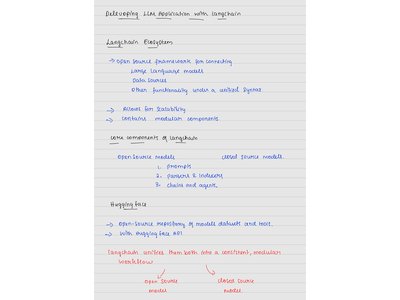 Developing LLM Application with Langchain
Langchain Ecosystem
→ Open Source framework for connecting
Large language models
Data Sources
Other functionality under a unified Syntax
→ Allows for Scalability
→ Contains modular components.
Core components of langchain
Open Source models closed source models.
1. Prompts
2. Parsers & indexers
3. chains and agents.
Hugging face
→ Open-Source Repository of models datasets and tool.
→ With Hugging face API
Langchain unifies them both into a consistent, modular
workflow
Open source closed source
model model.